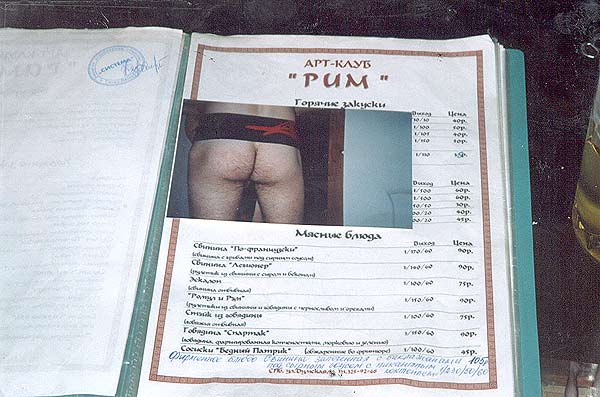 "СИСТЕМА"
АРТ-КЛУБ
"РИМ"
Горячие закуски
Выход Цена
10/10 40р.
1/100 50р.
1/101 40р.
1/150 50р.
1/110
Выход Цена
1/100 60р.
1/100 60р.
30р.
00/20 40р.
00/20 45р.
Мясные блюда
Выход Цена
Свинина "По-французски" 1/170/60 90р.
(свинина с грибами под сырным соусом)
Свинина "Легионер" 1/160/60 90р.
(рулетик из свинины с сыром и беконом)
Эскалоп 1/100/60 75р.
(свинина отбивная)
"Ромул и Рэм" 1/150/60 90р.
(рулетики из свинины и говядины с черносливом и орехами)
Стейк из говядины 1/100/60 75р.
(говядина отбивная)
Говядина "Спартак" 1/150/60 90р.
(говядина, фаршированная копченостями, морковью и зеленью)
Сосиски "Бедный Патрик" (обжаренные во фритюре) 1/100/60 45р.
Фирменное блюдо Свинина запеченная с баклажанами 105р
под сырным соусом с пикантным 1/230/20/60
СПб, ул.Думская,